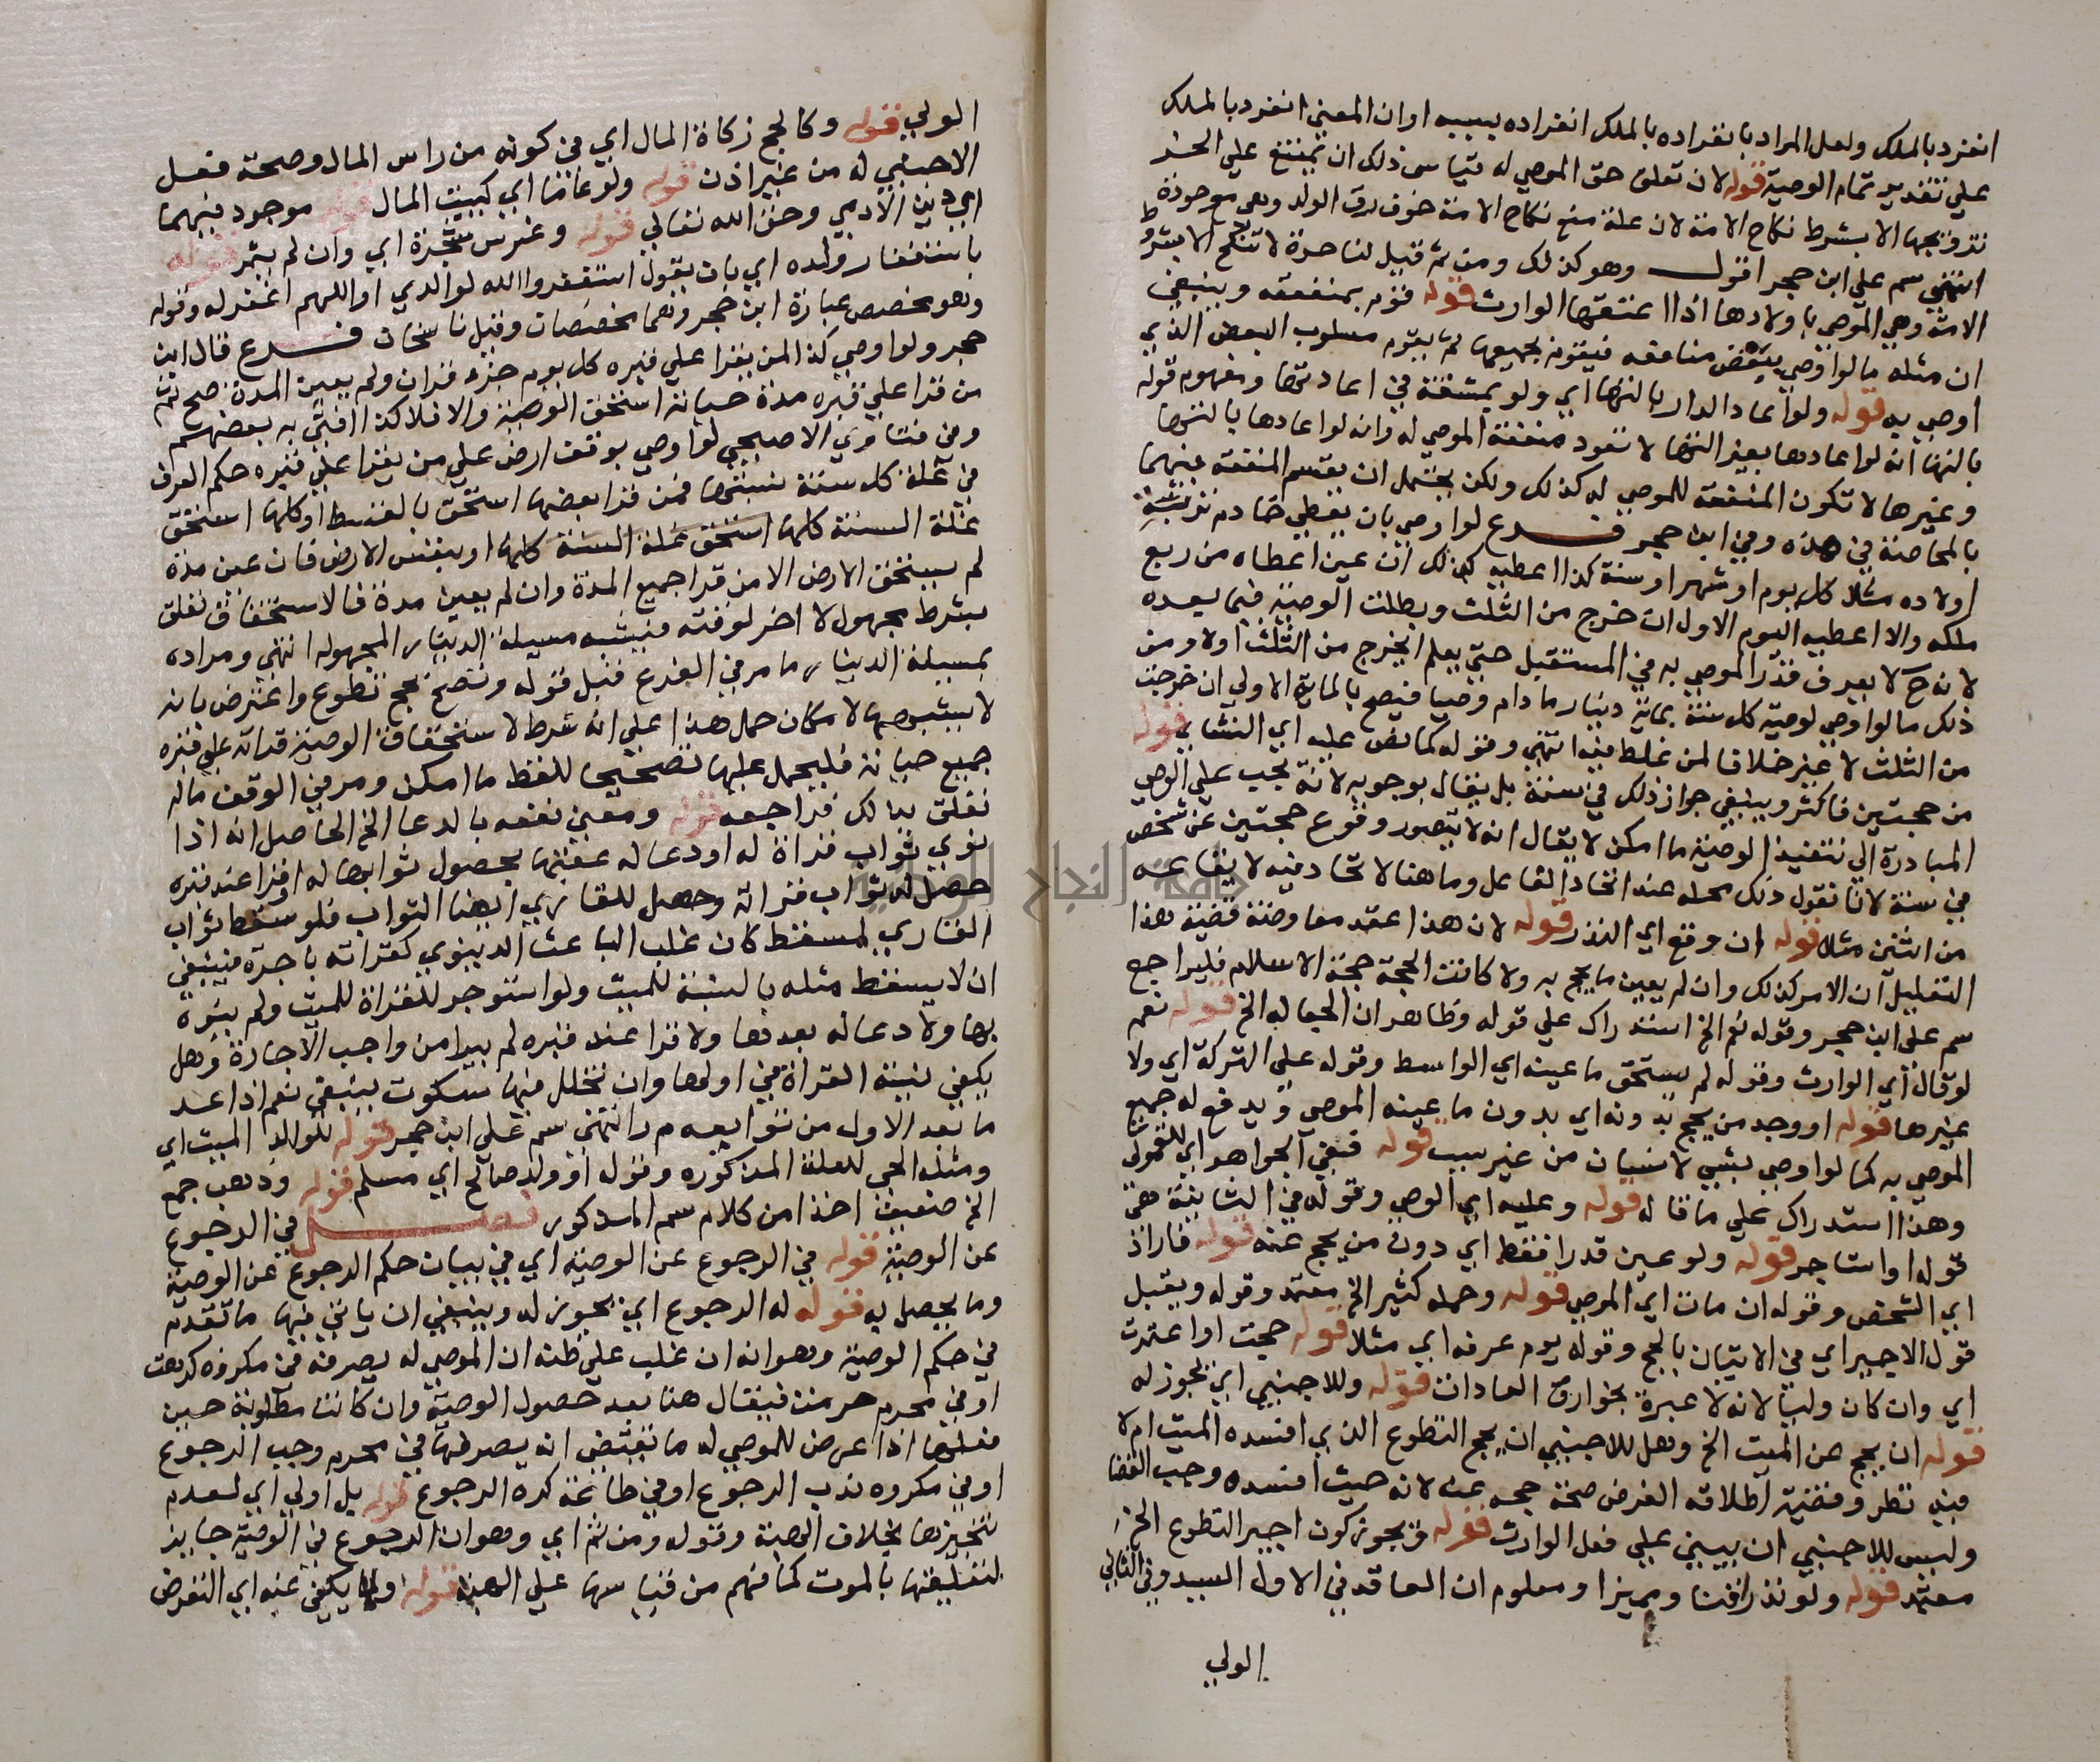 انفرد بالملك ولعل المراد بانفراده بالملك انفراده بسببه او ان المعني انفرد بالملك
علي تقدير تمام الوصية قوله لان تعلق حق الموصي له قياس ذلك ان يمتنع علي الحر
تزويجها الا بشرط نكاح الامة لان علة منع نكاح الامة خوف رق الولد وهي موجودة
انتهي سم علي ابن حجر اقول وهو كذلك ومن ثم قيل لنا حرة لا تنكح الا بشروط
الامة وهي الموصي باولادها اذا اعتقها الوارث قوله فوته بمنفعته وينبغي
ان مثله ما لو اوصي ببعض منافعه فيقوم بجميعها ثم يقوم مسلوب البعض الذي
اوصي به قوله ولو اعاد الدار بالتها اي ولو بمشقة في اعادتها ومفهوم قوله
بالتها انه لو اعادها بغير التها لا تعود منفعة الموصي له وانه لو اعادها بالتها
وغيرها لا تكون المنفعة للموصي له كذلك ولكن يحتمل ان تقسم المنفعة بينهما
بالمحاصة في هذه وفي ابن حجر فرع لو اوصي بان يعطي خادم تربته
اولاده مثلا كل يوم او شهر او سنة كذا اعطيه كذلك ان عين اعطاه من ريع
ملكه والا اعطيه اليوم الاول ان خرج من الثلث وبطلت الوصية فيما بعده
لانه ح لا يعرف قدر الموصي به في المستقبل حتي يعلم ايخرج من الثلث اولا ومن
ذلك ما لو اوصي لوصيه كل سنة بماية دينار ما دام وصيا فيصح بالماية الاولي ان خرجت
من الثلث لا غير خلافا لمن غلط فيه انتهي وقوله كما نص عليه اي الشافعي قوله
من حجتين فاكثر وينبغي جواز ذلك في سنة بل يقال بوجوبه لانه يجب علي الوصي
المبادرة الي تنفيذ الوصية ما امكن لا يقال انه لا يتصور وقوع حجتين عن شخص
في سنة لانا نقول ذلك محله عند اتحاد الفاعل وما هنا لا اتحاد فيه لايقاعه
من اثنين مثلا قوله ان وقع اي النذر قوله لان هذا عقد معاوضة قضية هذا
التعليل ان الامر كذلك وان لم يعين ما يحج به ولا كانت الحجة حجة الاسلام فليراجع
سم علي ابن حجر وقوله ثم الخ استدراك علي قوله وظاهر ان الجعاله الخ قوله نعم
لو قال اي الوارث وقوله لم يستحق ما عينه اي الواسط وقوله علي التركة اي ولا
غيرها قوله او وجد من يحج بدونه اي بدون ما عينه الموصي ويدفع له جميع
الموصي به كما لو اوصي بشي لانسان من غير سبب قوله ففي الجواهر اي للقمولي
وهذا استدراك علي ما قاله قوله وعليه اي الوصي وقوله في الثانية هي
قوله او استاجر قوله ولو عين قدرا فقط اي دون من يحج عنه قوله فاراد
اي الشخص وقوله ان مات اي الموصي قوله وحمله كثير الخ معتمد وقوله ويقبل
قول الاجير اي في الاتيان بالحج وقوله يوم عرفه اي مثلا قوله حججت او اعتمرت
اي وان كان وليا لانه لا عبرة بخوارق العادات قوله وللاجنبي اي يجوز له
قوله ان يحج عن الميت الخ وهل للاجنبي ان يحج التطوع الذي افسده الميت ام لا
فيه نظر وقضية اطلاقه الفرض صحة حجه عنه لانه حيث افسده وجب القضا
وليس للاجنبي ان يبني علي فعل الوارث قوله ويجوز كون اجير التطوع الخ
معتمد قوله ولو نذر قنا ومميزا ومعلوم ان العاقد في الاول السيد وفي الثاني
الولي
الولي قوله وكالحج زكاة المال اي في كونه من راس المال وصحة فعل
الاجنبي له من غير اذن قوله ولو عاما اي كبيت المال قوله موجود فيهما
اي دين الآدمي وحق الله تعالي قوله وغرس شجرة اي وان لم يثمر قوله
باستغفار ولده اي بان يقول استغفروا الله لوالدي او اللهم اغفر له وقوله
وهو مخصص عبارة ابن حجر وهما مخصصات وقيل ناسخات فرع قال ابن
حجر ولو اوصي كذا لمن يقرا علي قبره كل يوم جزء قران ولم يعين المدة صح ثم
من قرا علي قبره مدة حياته استحق الوصية والا فلا كذا افتي به بعضهم
وفي فتاوي الاصبحي لو اوصي بوقف ارض علي من يقرا علي قبره حكم العرف
في غلة كل سنة بسنتها فمن قرا بعضها استحق بالقسط او كلها استحق
غلة السنة كلها استحق غلة السنة كلها او بنفس الارض فان عين مدة
لم يستحق الارض الا من قرا جميع المدة وان لم يعين مدة فالاستحقاق تعلق
بشرط مجهول لا اخر لوقته فيشبه مسيلة الدينار المجهوله انتهي ومراده
بمسيلة الدينار ما مر في الفرع قبل قوله وتصح بحج تطوع واعترض بانه
لا يشبهها لامكان حمل هذا علي انه شرط لاستحقاق الوصية قراته علي قبره
جميع حياته فليحمل عليها تصحيحا للفظ ما امكن ومر في الوقف ماله
تعلق بذلك فراجعه قوله ومعني نفعه بالدعا الخ الحاصل انه اذا
نوي ثواب قراة له او دعا له عقبها بحصول ثوابها له او قرا عند قبره
حصل له ثواب قراته وحصل للقاري ايضا الثواب فلو سقط ثواب
القاري لمسقط كان غلب الباعث الدنيوي كقراته باجرة فينبغي
ان لا يسقط مثله بالنسبة للميت ولو استوجر للقراة للميت ولم ينوه
بها ولا دعا له بعدها ولا قرا عند قبره لم يبرا من واجب الاجارة وهل
يكفي نية القراة في اولها وان تخلل فيها سكوت ينبغي نعم اذا عد
ما بعد الاول من توابعه م ر انتهي سم علي ابن حجر قوله للوالد الميت اي
ومثله الحي للعلة المذكوره وقوله او ولد صالح اي مسلم قوله وذهب جمع
الخ ضعيف اخذا من كلام سم المذكور فصل في الرجوع
عن الوصية قوله في الرجوع عن الوصية اي في بيان حكم الرجوع عن الوصية
وما يحصل به قوله له الرجوع اي يجوز له وينبغي ان ياتي فيها ما تقدم
في حكم الوصية وهو انه ان غلب علي ظنه ان الموصي له يصرفه في مكروه كرهت
او في محرم حرمت فيقال هنا بعد حصول الوصية وان كانت مطلوبة حين
فعلها اذا عرض للموصي له ما يقتضي انه يصرفها في محرم وجب الرجوع
او في مكروه ندب الرجوع او في طاعة كره الرجوع قوله بل اولي اي لعدم
تنجيزها بخلاف الهبة وقوله ومن ثم اي وهو ان الرجوع في الوصية جايز
لتعليقها بالموت كما فهم من قياسها علي الهبة قوله ولا يكفي عنه اي التعرض